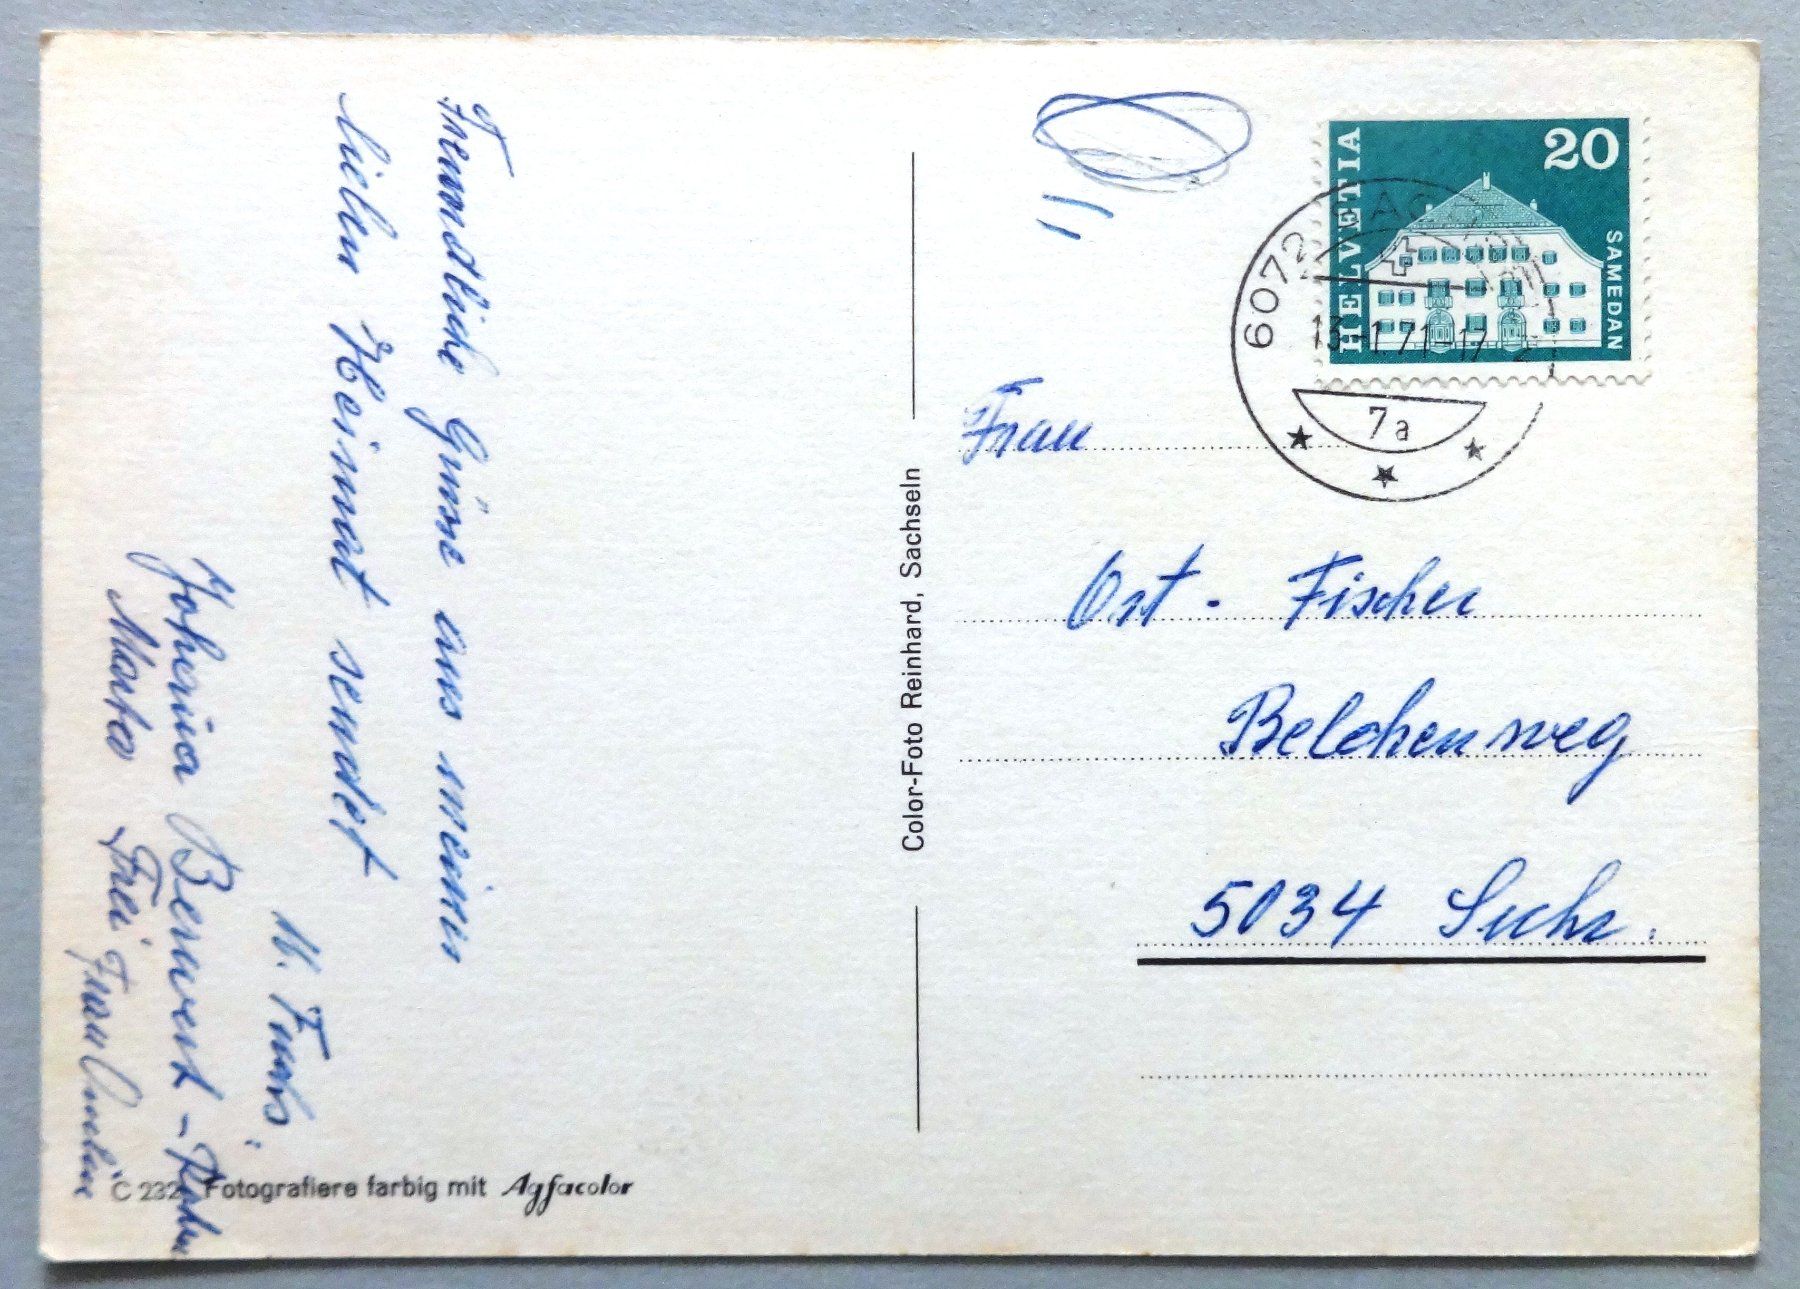 Freundliche Grüsse aus meiner
lieben Heimat sendet
Fuchs
Johanna Berwert - Rohrer
Marta Frei Frau
C 232 Fotografiere farbig mit Agfacolor
Color-Foto Reinhard, Sachseln
HELVETIA
20
SAMEDAN
6072
13.-1.71-17
7a
Frau
Ort - Fischer
Belchenweg
5034 Suhr.